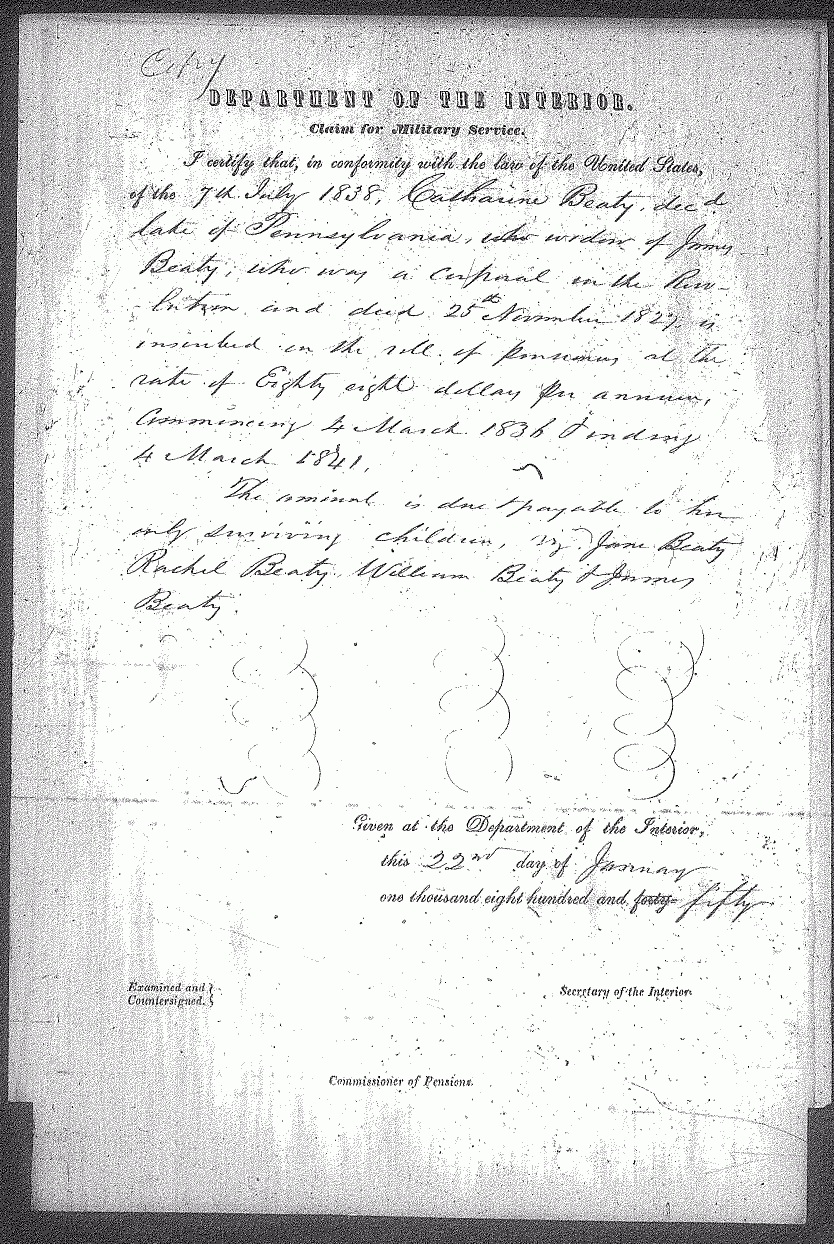 Copy
DEPARTMENT OF THE INTERIOR.
Claim for Military Service.
I certify that, in conformity with the law of the United States,
of the 7th July 1838, Catharine Beaty, dec'd
late of Pennsylvania, who widow of James
Beaty, who was a corporal in the Rev-
lution and died 25th November 182 is
inscribed on the roll of pensioners at the
rate of Eighty eight dollars per annum,
Commencing 4 March 1836 & ending
4 March 1841.
The amount is due & payable to her
only surviving children, viz Jane Beaty
Rachel Beaty, William Beaty & James
Beaty.
Given at the Department of the Interior,
this 22nd day of January
one thousand eight hundred and forty- fifty
Examined and
Countersigned.
Secretary of the Interior.
Commissioner of Pensions.